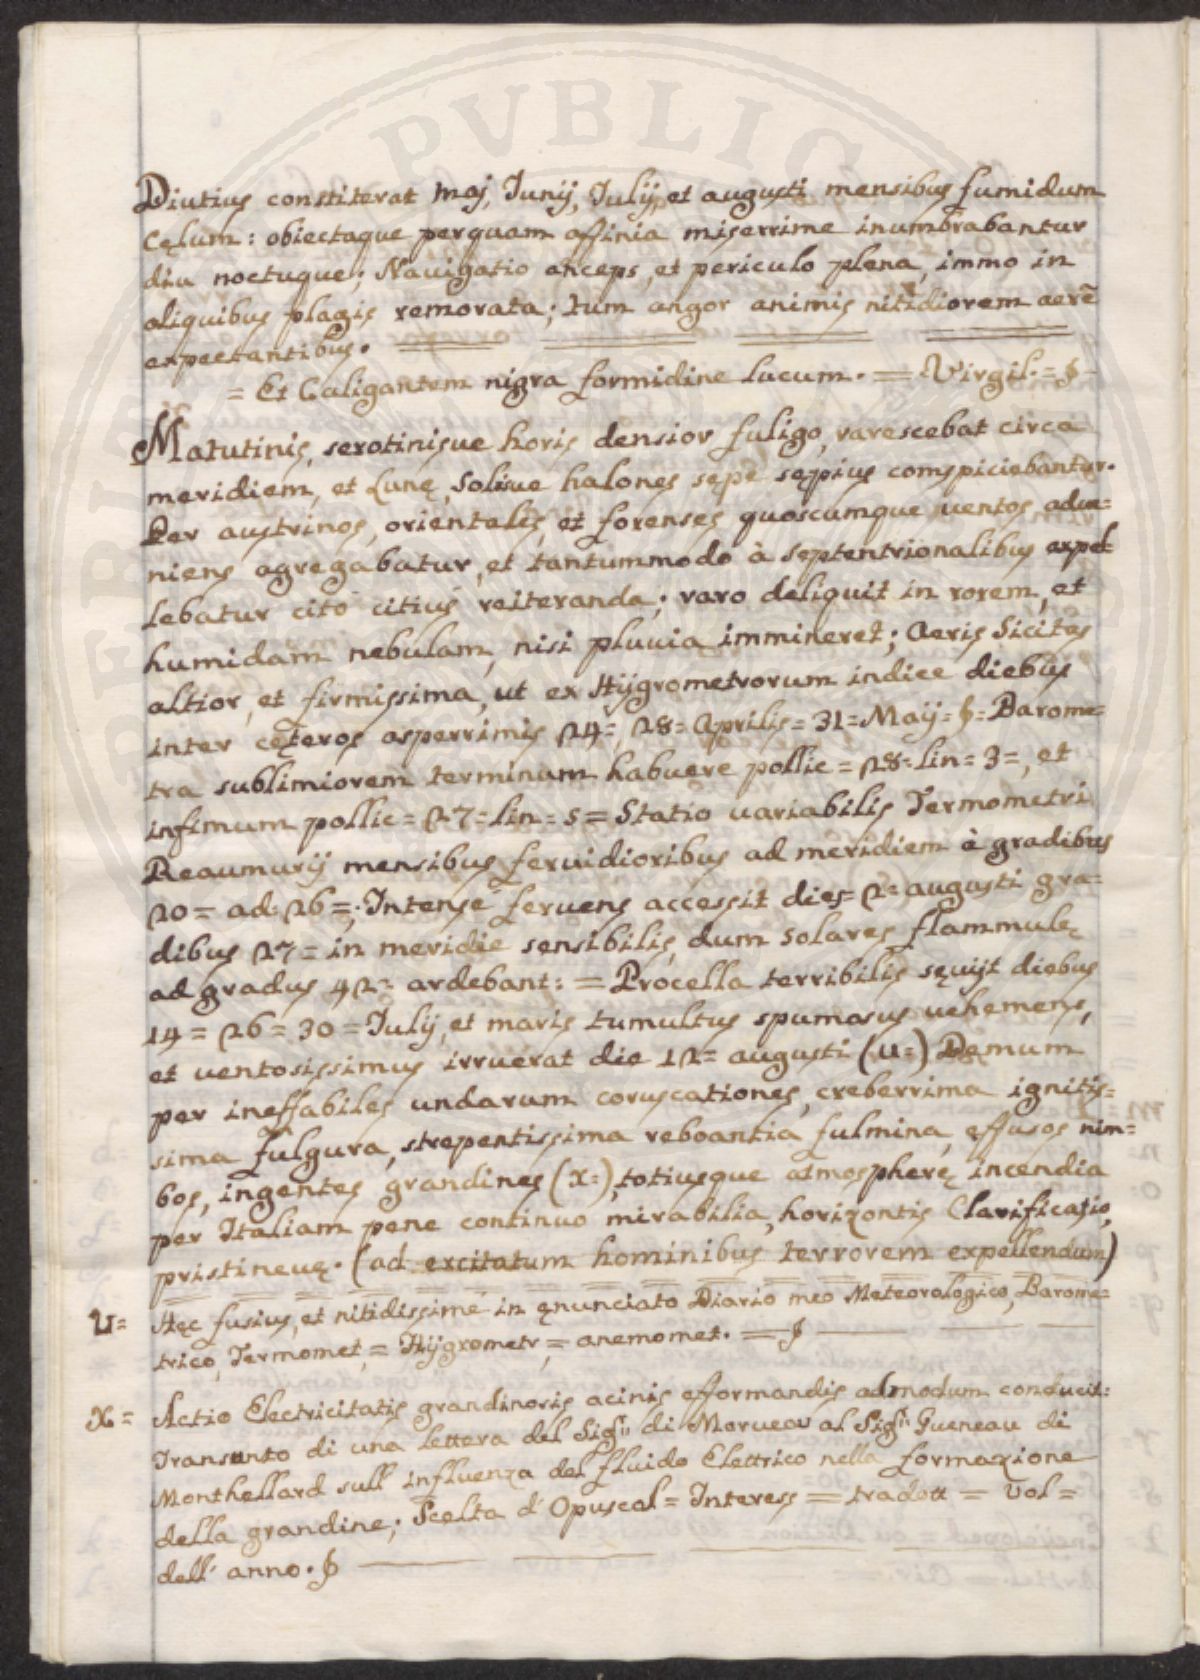 PVBLIC
Diutius constiterat Maj, Junij, Julij, et augusti mensibus fumidum
Cęlum: obiectaque perquam affinia miserrime inumbrabantur
diu noctuque; Nauigatio anceps, et periculo plena, immo in
aliquibus plagis remorata; tum angor animis nitidiorem aerẽ
expectantibus.
= Et Caligantem nigra formidine lucum. = Virgil. =
Matutinis, serotinisue horis densior fuligo, rarescebat circa
meridiem, et Lunę, Solisue halones sępe sępius comspiciebantur.
Per austrinos, orientales, et forenses quoscumque uentos adue=
niens agregabatur, et tantummodo à septentrionalibus expel
lebatur citò citius reiteranda; raro deliquit in rorem, et
humidam nebulam, nisi pluuia immineret; aeris Sicitas
altior, et firmissima, ut ex Hÿgrometrorum indice diebus
inter cęteros asperrimis 24=, 28= Aprilis = 31 = Maÿ = Barome=
tra sublimiorem terminum habuere pollic = 28 = lin = 3 =, et
infimum pollic = 27 = lin = 5 = Statio uariabilis Termometri
Reaumurij mensibus feruidioribus ad meridiem à gradibus
20 = ad 26 =; Intensè feruens accessit dies = 2 = augusti gra=
dibus 27 = in meridie sensibilis, dum Solares flammulę
ad gradus 42 = ardebant: = Procella terribilis sęuijt diebus
14 = 26 = 30 = Julij, et maris tumultus spumosus uehemens,
et uentosissimus irruerat die 12 = augusti (u=) Demum
per ineffabiles undarum coruscationes, creberrima ignitis=
sima fulgura, strepentissima reboantia fulmina, effusos nim=
bos, ingentes grandines (x=), totiusque atmospherę incendia
per Italiam pene continuo mirabilia, horizontis Clarificatio,
pristineuę. (ad excitatum hominibus terrorem expellendum)
U= Hęc fusius, et nitidissimè in ęnunciato Diario meo Meteorologico, Barome=
trico, Termomet, = Hÿgrometr, = anemomet. =
X= Actio Electricitatis grandinosis acinis efformandis admodum conducit:
Transunto di una lettera del Sig.r di Morueau al Sig.r Gueneau di
Monthellard sull influenza del fluido Elettrico nella formazione
della grandine; Scelta d' Opuscol = Interess = tradott = Vol =
dell' anno.